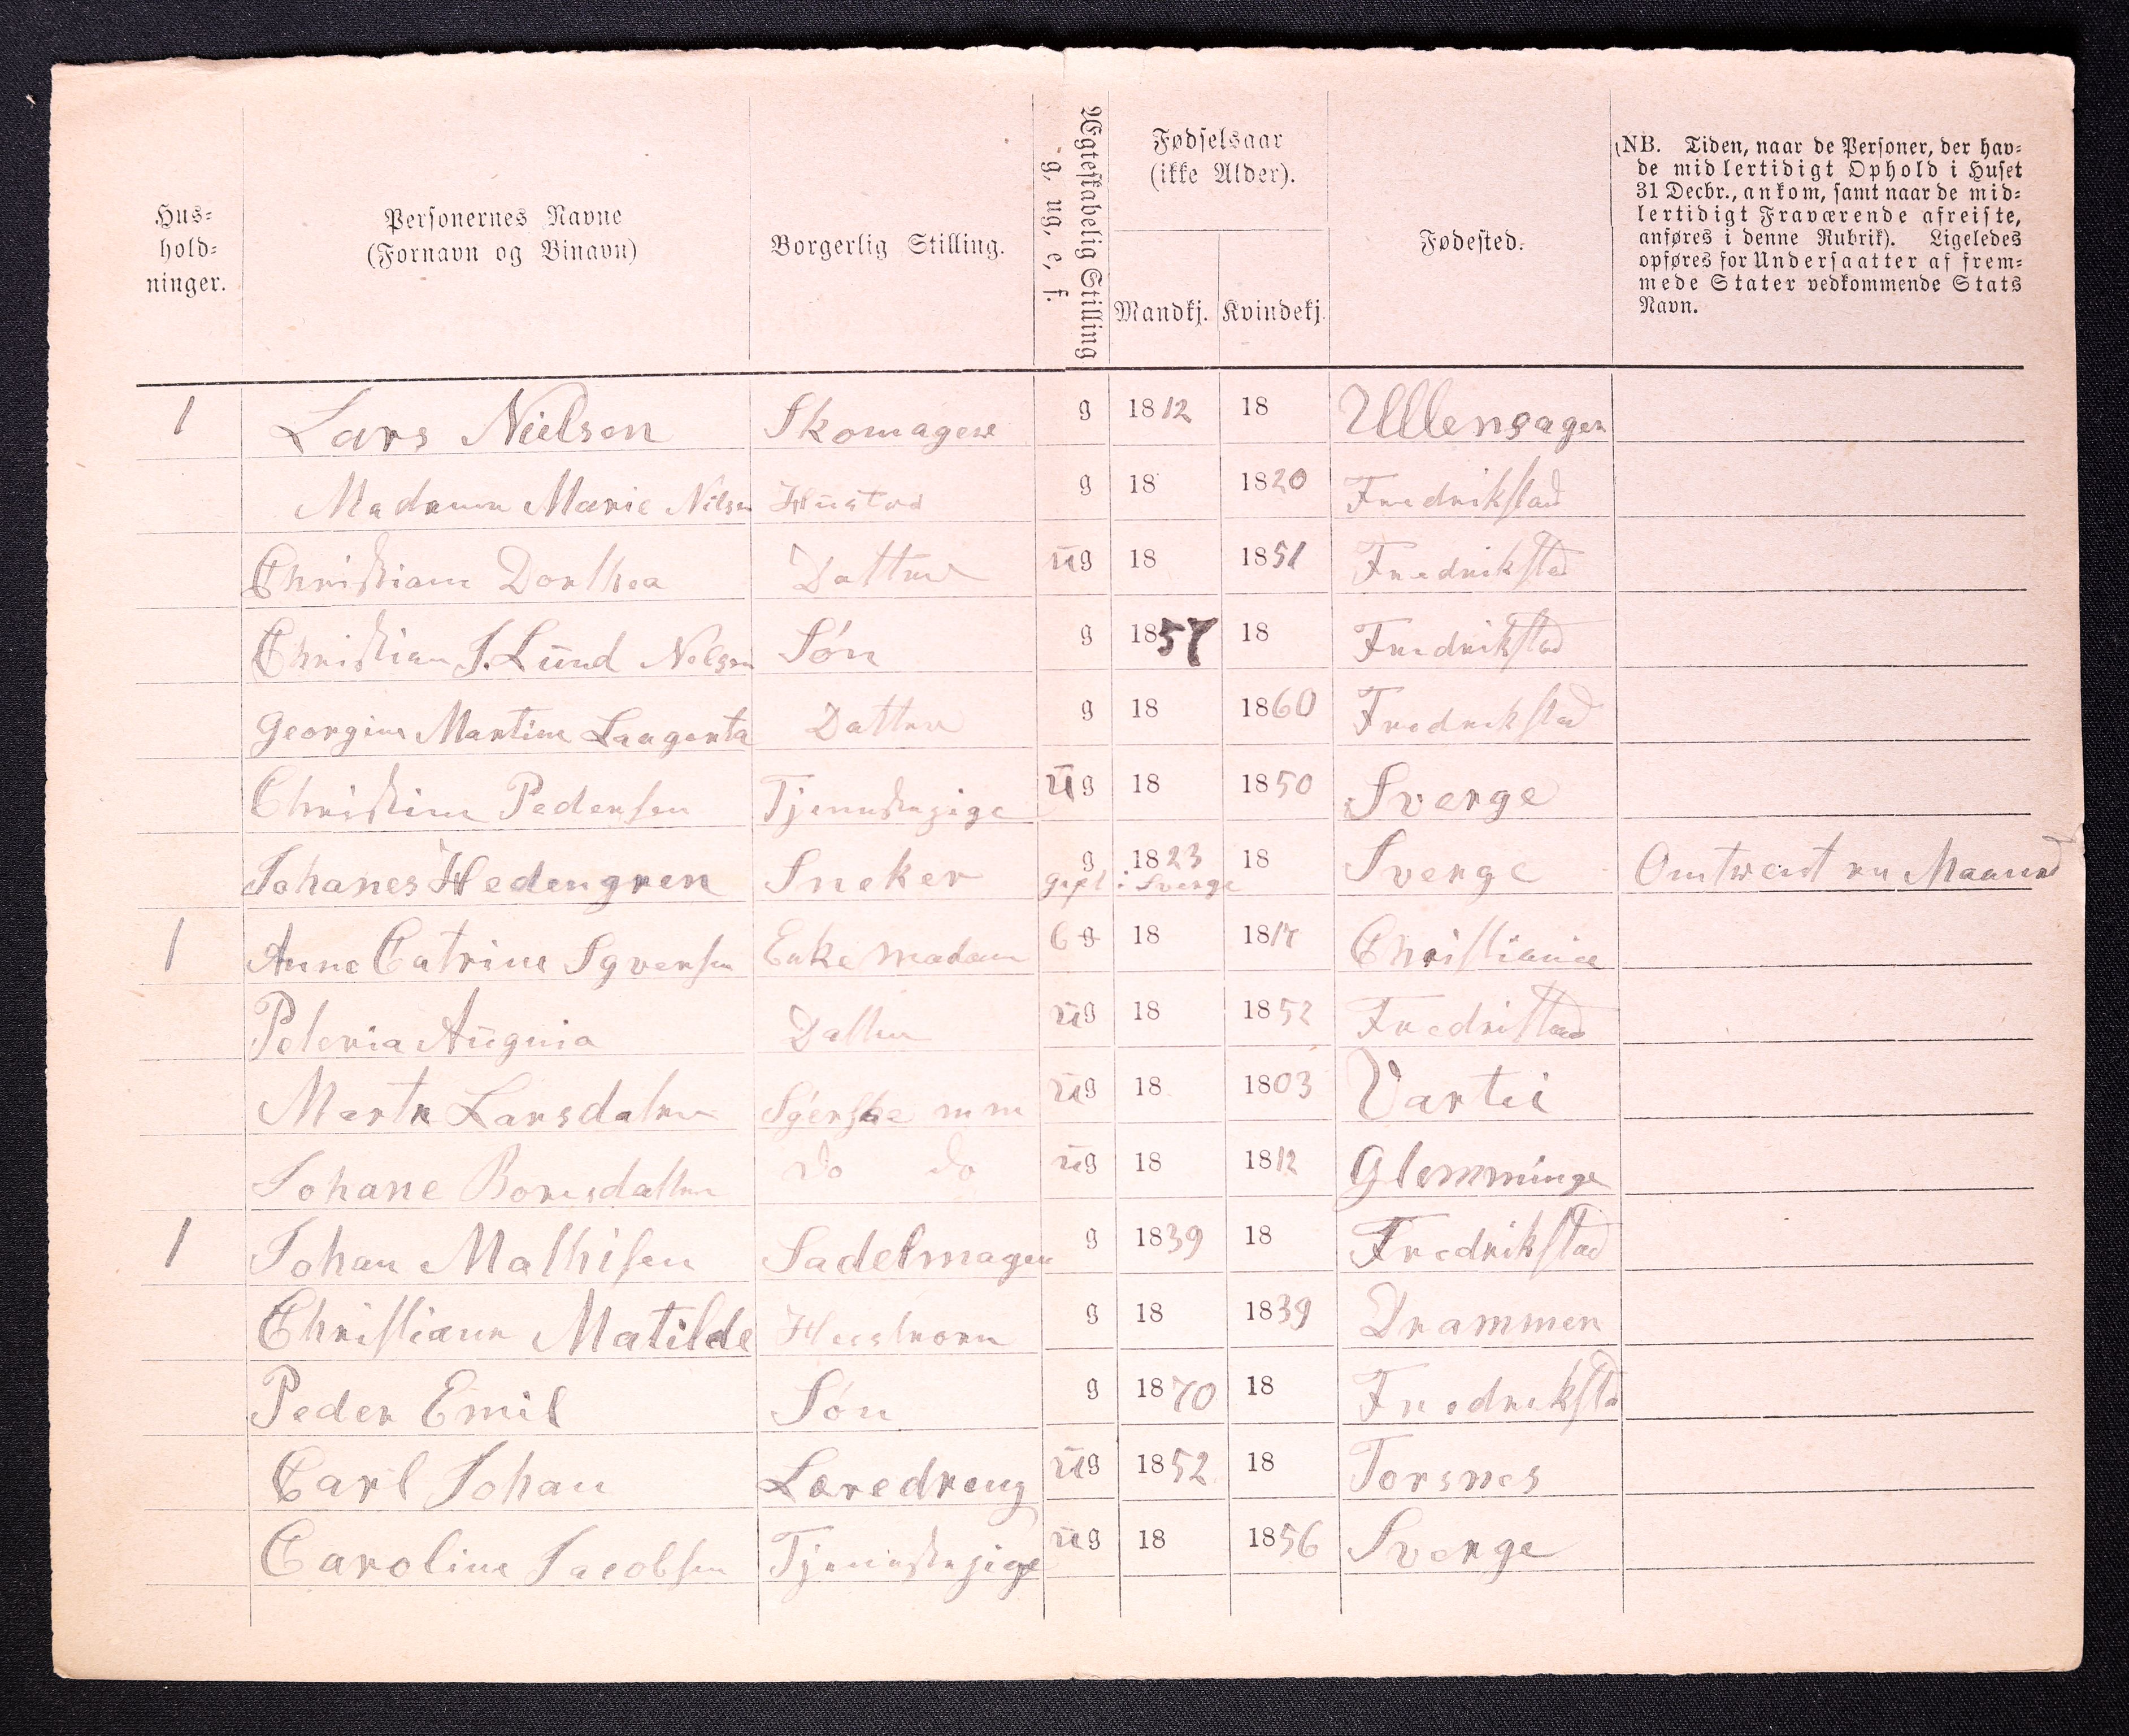 Hus-
hold-
ninger.
Personernes Navne
(Fornavn og Binavn)
Borgerlig Stilling.
Ægteskabelig Stilling
g, ug, e, f.
Fødselsaar
(ikke Alder).
Mandkj. Kvindekj.
Fødested.
(NB. Tiden, naar de Personer, der hav-
de midlertidigt Ophold i Huset
31 Decbr., ankom, samt naar de mid-
lertidigt Fraværende afreiste,
anføres i denne Rubrik). Ligeledes
opføres for Undersaatter af frem-
mede Stater vedkommende Stats
Navn.
1 Lars Nielsen Skomager g 1812 18 Ullensager
Madamm Marie Nilsen Hustro g 18 1820 Fredrikstad
Christiane Dorthea Datter ug 18 1851 Fredrikstad
Christian J. Lund Nelsen Søn g 1857 18 Fredrikstad
Georgine Martine Laugenta Datter g 18 1860 Fredrikstad
Christine Pedersen Tjenestepige ug 18 1850 Sverge
Johanes Hedengren Sneker g 1823 18 Sverge Maaned
gift i Sverge
1 Anne Catrine Syversen Enke madam g 18 18 Christiania
Auguia Datter ug 18 1852 Fredristad
Larsdatter Syerske mm ug 18 1803 Vartei
Johane do do ug 18 1812 Glemminge
1 Johan Mathisen Sadelmager g 1839 18 Fredrikstad
Christiane Matilde Hustrorn g 18 1839 Drammen
Peder Emil Søn g 1870 18 Fredriksta
Carl Johan Læredreng ug 1852 18 Torsnes
Caroline Jacobsen Tjenestepige ug 18 1856 Sverge